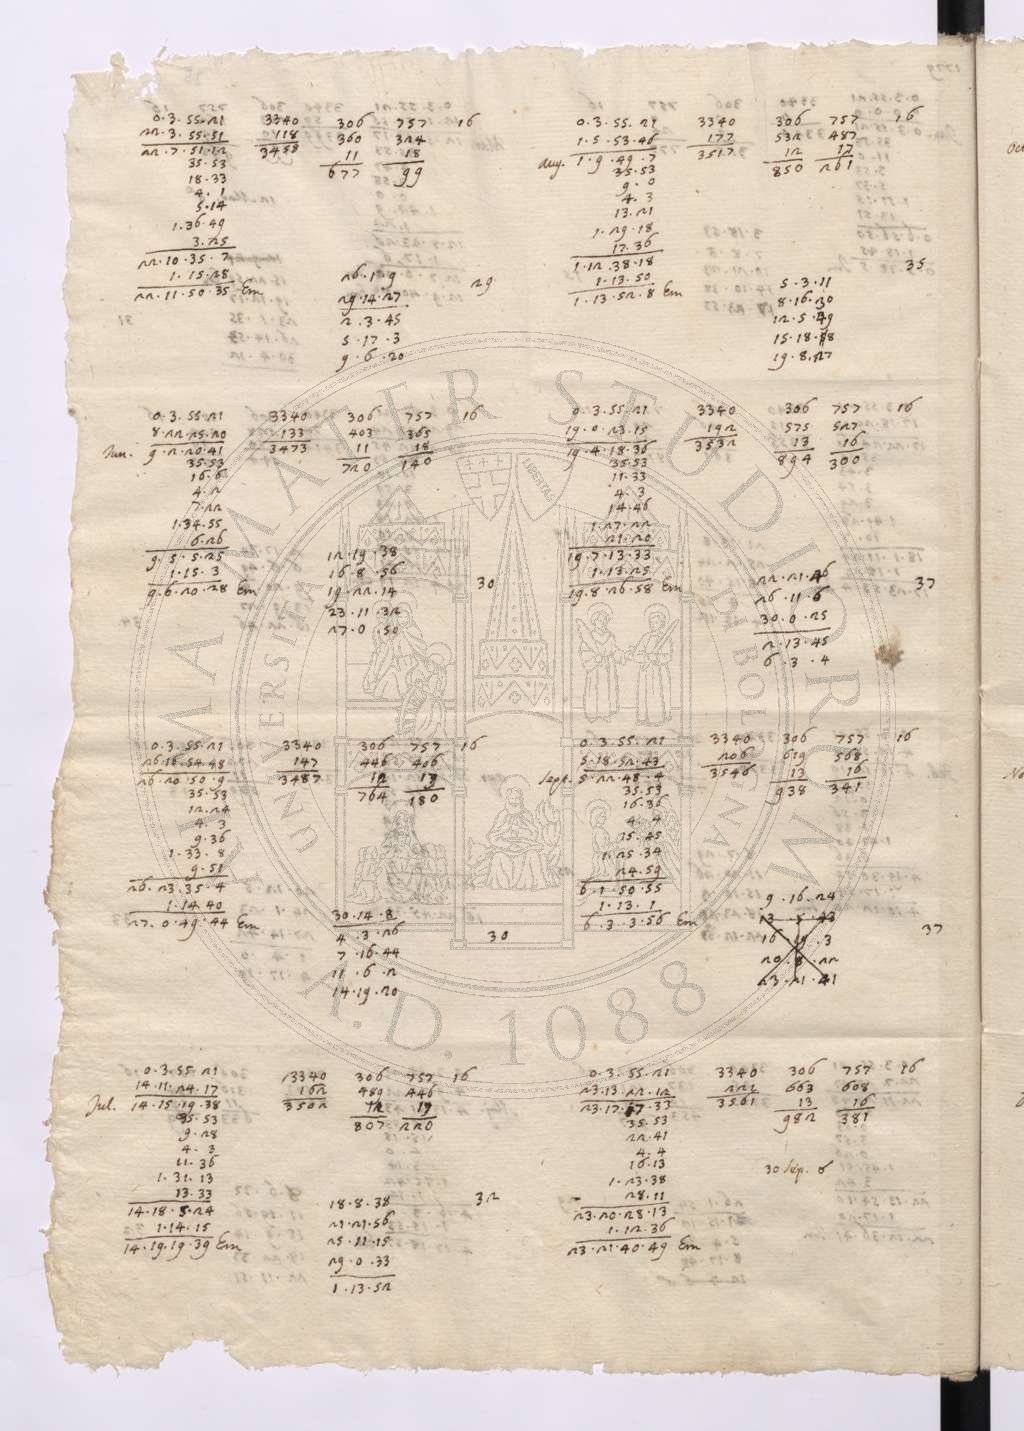 0.3.55.21 3340 306 757 16
22.3.55.51 118 360 324
22.7.51.12 3458 11 18
35.53 677 99
18.33
4.1
5.14
1.36.49
3.25
22.10.35.7 26.1.9 29
1.15.28 29.14.27
22.11.50.35 Em 2.3.45
5.17.3
9.6.20
0.3.55.21 3340 306 757 16
Jun. 8.22.25.20 133 403 365
9.2.20.41 3473 11 18
35.53 720 140
16.6
4.2
7.22
1.34.55
6.26
9.5.5.25 12.19.38
1.15.3 16.8.56 30
9.6.20.28 Em 19.22.14
23.11.32
27.0.50
0.3.55.21 3340 306 757 16
26.16.54.48 147 446 406
26.20.50.9 3487 12 17
35.53 764 180
12.24
4.3
9.36
1.33.8
9.51
26.23.35.4
1.14.40 30.14.8
27.0.49.44 Em 4.3.26 30
7.16.44
11.6.2
14.19.20
0.3.55.21 3340 306 757 16
14.11.24.17 162 489 446
Jul. 14.15.19.38 3502 12 17
35.53 807 220
9.28
4.3
11.36
1.31.13
13.33
14.18.5.24 18.8.38 32
1.14.15 21.21.56
14.19.19.39 Em 25.11.15
29.0.33
1.13.52
0.3.55.21 3340 306 757 16
1.5.53.46 177 532 487
Aug. 1.9.49.7 3517 12 17
35.53 850 261
9.0
4.3
13.21
1.29.18
17.36
1.12.38.18 35
1.13.50 5.3.11
1.13.52.8 Em 8.16.30
12.5.49
15.18.58
19.8.27
0.3.55.21 3340 306 757 16
19.0.23.15 192 575 527
19.4.18.36 3532 13 16
35.53 894 300
11.33
4.3
14.46
1.27.22
21.20
19.7.13.33
1.13.25 22.21.46 37
19.8.26.58 Em 26.11.6
30.0.25
2.13.45
6.3.4
0.3.55.21 3340 306 757 16
Sept. 5.18.52.43 206 619 568
5.22.48.4 3546 13 16
35.53 938 341
16.36
4.4
15.45
1.25.34
24.59
6.1.50.55 9.16.24
1.13.1 13.5.43
6.3.3.56 Em 16.19.3 37
20.8.22
23.21.41
0.3.55.21 3340 306 757 16
23.13.22.12 221 663 608
23.17.17.33 3561 13 16
35.53 982 381
22.41
4.4
16.13 30 Sep. 6
1.23.38
28.11
23.20.28.13
1.12.36
23.21.40.49 Em
ALMA MATER STUDIORUM
UNIVERSITAS BOLOGNA
LIBERTAS
A.D. 1088